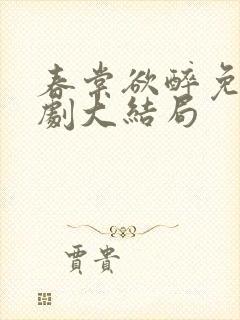 春棠欲醉免
劇大結局
賈貴